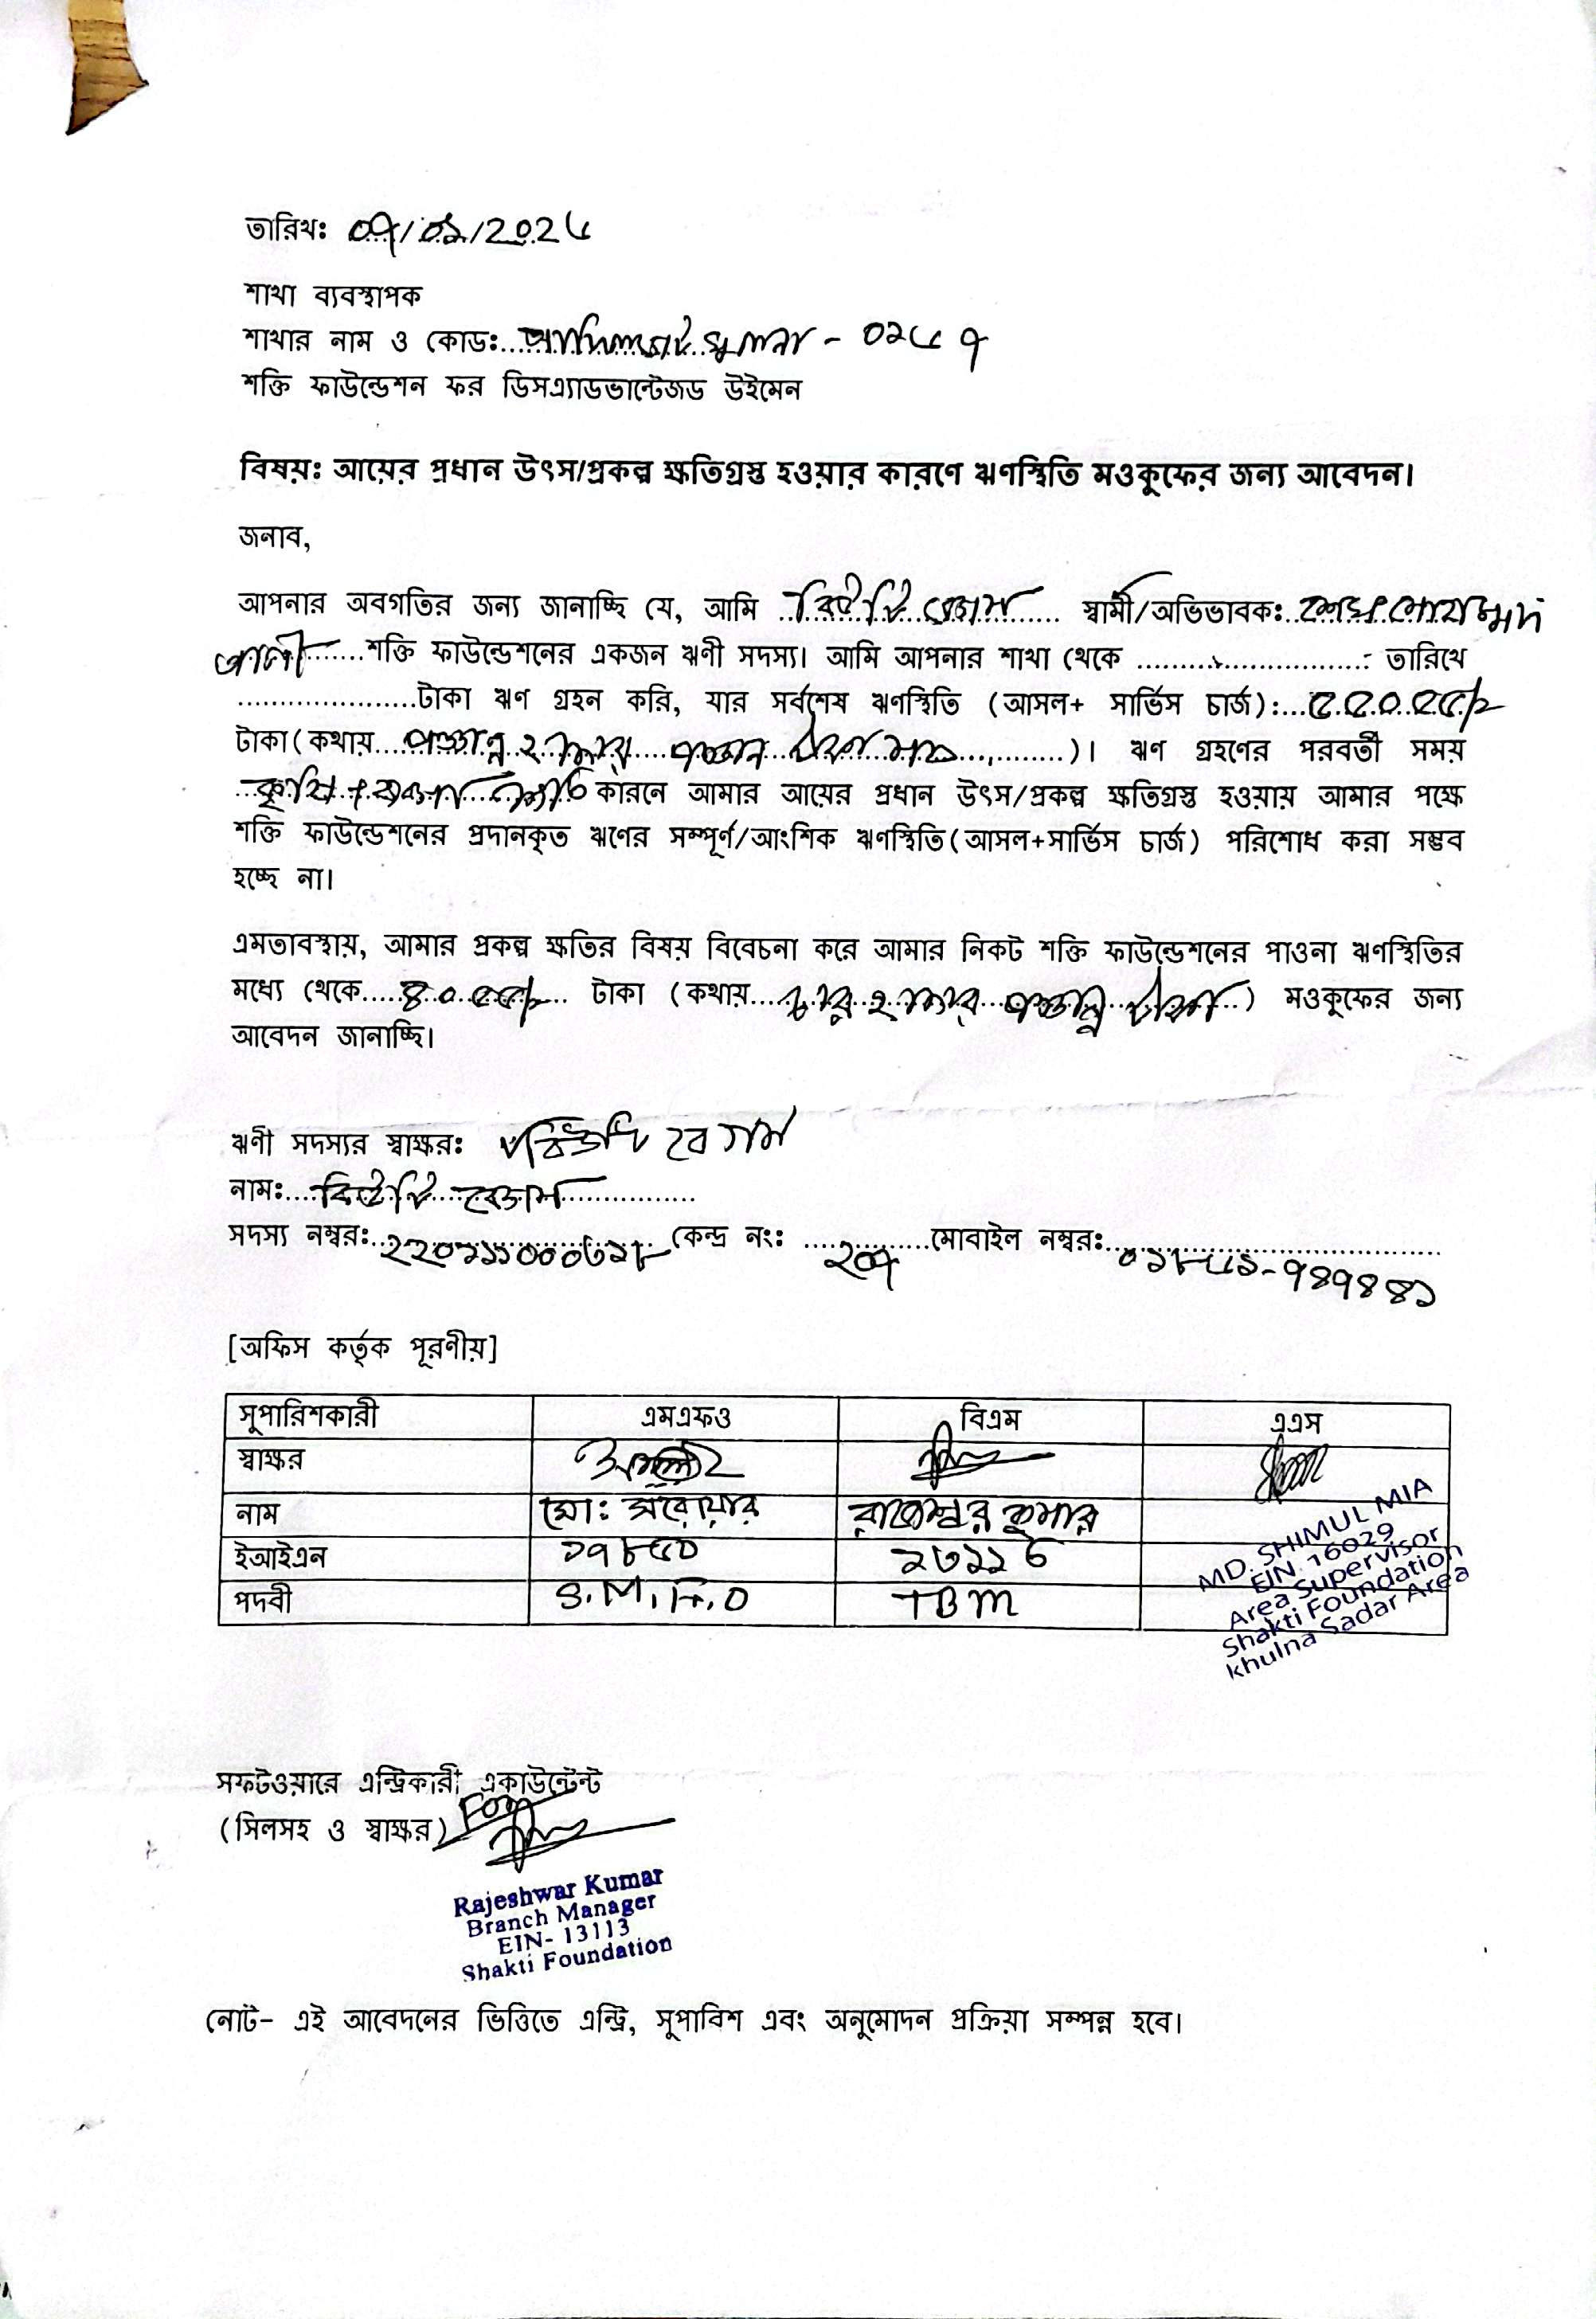 তারিখঃ ০৭/০১/202৫
শাখা ব্যবস্থাপক
শাখার নাম ও কোডঃ.................... খুলনা - ০২৫৭
শক্তি ফাউন্ডেশন ফর ডিসএ্যাডভান্টেজড উইমেন
বিষয়ঃ আয়ের প্রধান উৎস/প্রকল্প ক্ষতিগ্রস্ত হওয়ার কারণে ঋণস্থিতি মওকুফের জন্য আবেদন।
জনাব,
আপনার অবগতির জন্য জানাচ্ছি যে, আমি বিউটি বেগম স্বামী/অভিভাবকঃ শেখ মোহাম্মদ
আলী শক্তি ফাউন্ডেশনের একজন ঋণী সদস্য। আমি আপনার শাখা থেকে .............................. তারিখে
....................টাকা ঋণ গ্রহন করি, যার সর্বশেষ ঋণস্থিতি (আসল+ সার্ভিস চার্জ):...৫৫০৫৫/-
টাকা(কথায় পঞ্চান্ন হাজার পঞ্চান্ন টাকা মাত্র)। ঋণ গ্রহণের পরবর্তী সময়
কারনে আমার আয়ের প্রধান উৎস/প্রকল্প ক্ষতিগ্রস্ত হওয়ায় আমার পক্ষে
শক্তি ফাউন্ডেশনের প্রদানকৃত ঋণের সম্পূর্ণ/আংশিক ঋণস্থিতি(আসল+সার্ভিস চার্জ) পরিশোধ করা সম্ভব
হচ্ছে না।
এমতাবস্থায়, আমার প্রকল্প ক্ষতির বিষয় বিবেচনা করে আমার নিকট শক্তি ফাউন্ডেশনের পাওনা ঋণস্থিতির
মধ্যে থেকে.....৪০৫৫/- টাকা (কথায় চার হাজার পঞ্চান্ন টাকা) মওকুফের জন্য
আবেদন জানাচ্ছি।
ঋণী সদস্যর স্বাক্ষরঃ বিউটি বেগম
নামঃ বিউটি বেগম
সদস্য নম্বরঃ কেন্দ্র নংঃ ২০৭ মোবাইল নম্বরঃ ০১৮৫১-৭৪৭৪৪১
[অফিস কর্তৃক পূরণীয়]
সুপারিশকারী এমএফও বিএম এএস
স্বাক্ষর
নাম মোঃ সরোয়ার রাজেশ্বর কুমার
ইআইএন ১৭৮৫০ ১৩১১৩
পদবী S.M.F.O TBM
MD. SHIMUL MIA
EIN. 16029
Area Supervisor
Shakti Foundation
khulna Sadar Area
সফটওয়ারে এন্ট্রিকারী একাউন্টেন্ট
(সিলসহ ও স্বাক্ষর) For
Rajeshwar Kumar
Branch Manager
EIN- 13113
Shakti Foundation
নোট- এই আবেদনের ভিত্তিতে এন্ট্রি, সুপাবিশ এবং অনুমোদন প্রক্রিয়া সম্পন্ন হবে।